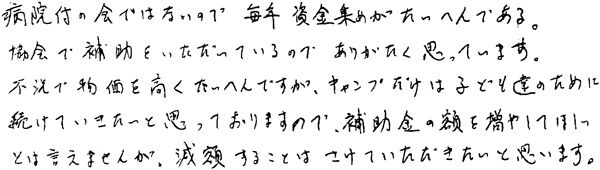 病院付の会ではないので 毎年 資金集めがたいへんである。
協会で補助をいただいているので ありがたく思っています。
不況で物価も高くたいへんですが、キャンプだけは子ども達のために
続けていきたいと思っておりますので、補助金の額を増やしてほしい
とは言えませんが、減額することはさけていただきたいと思います。